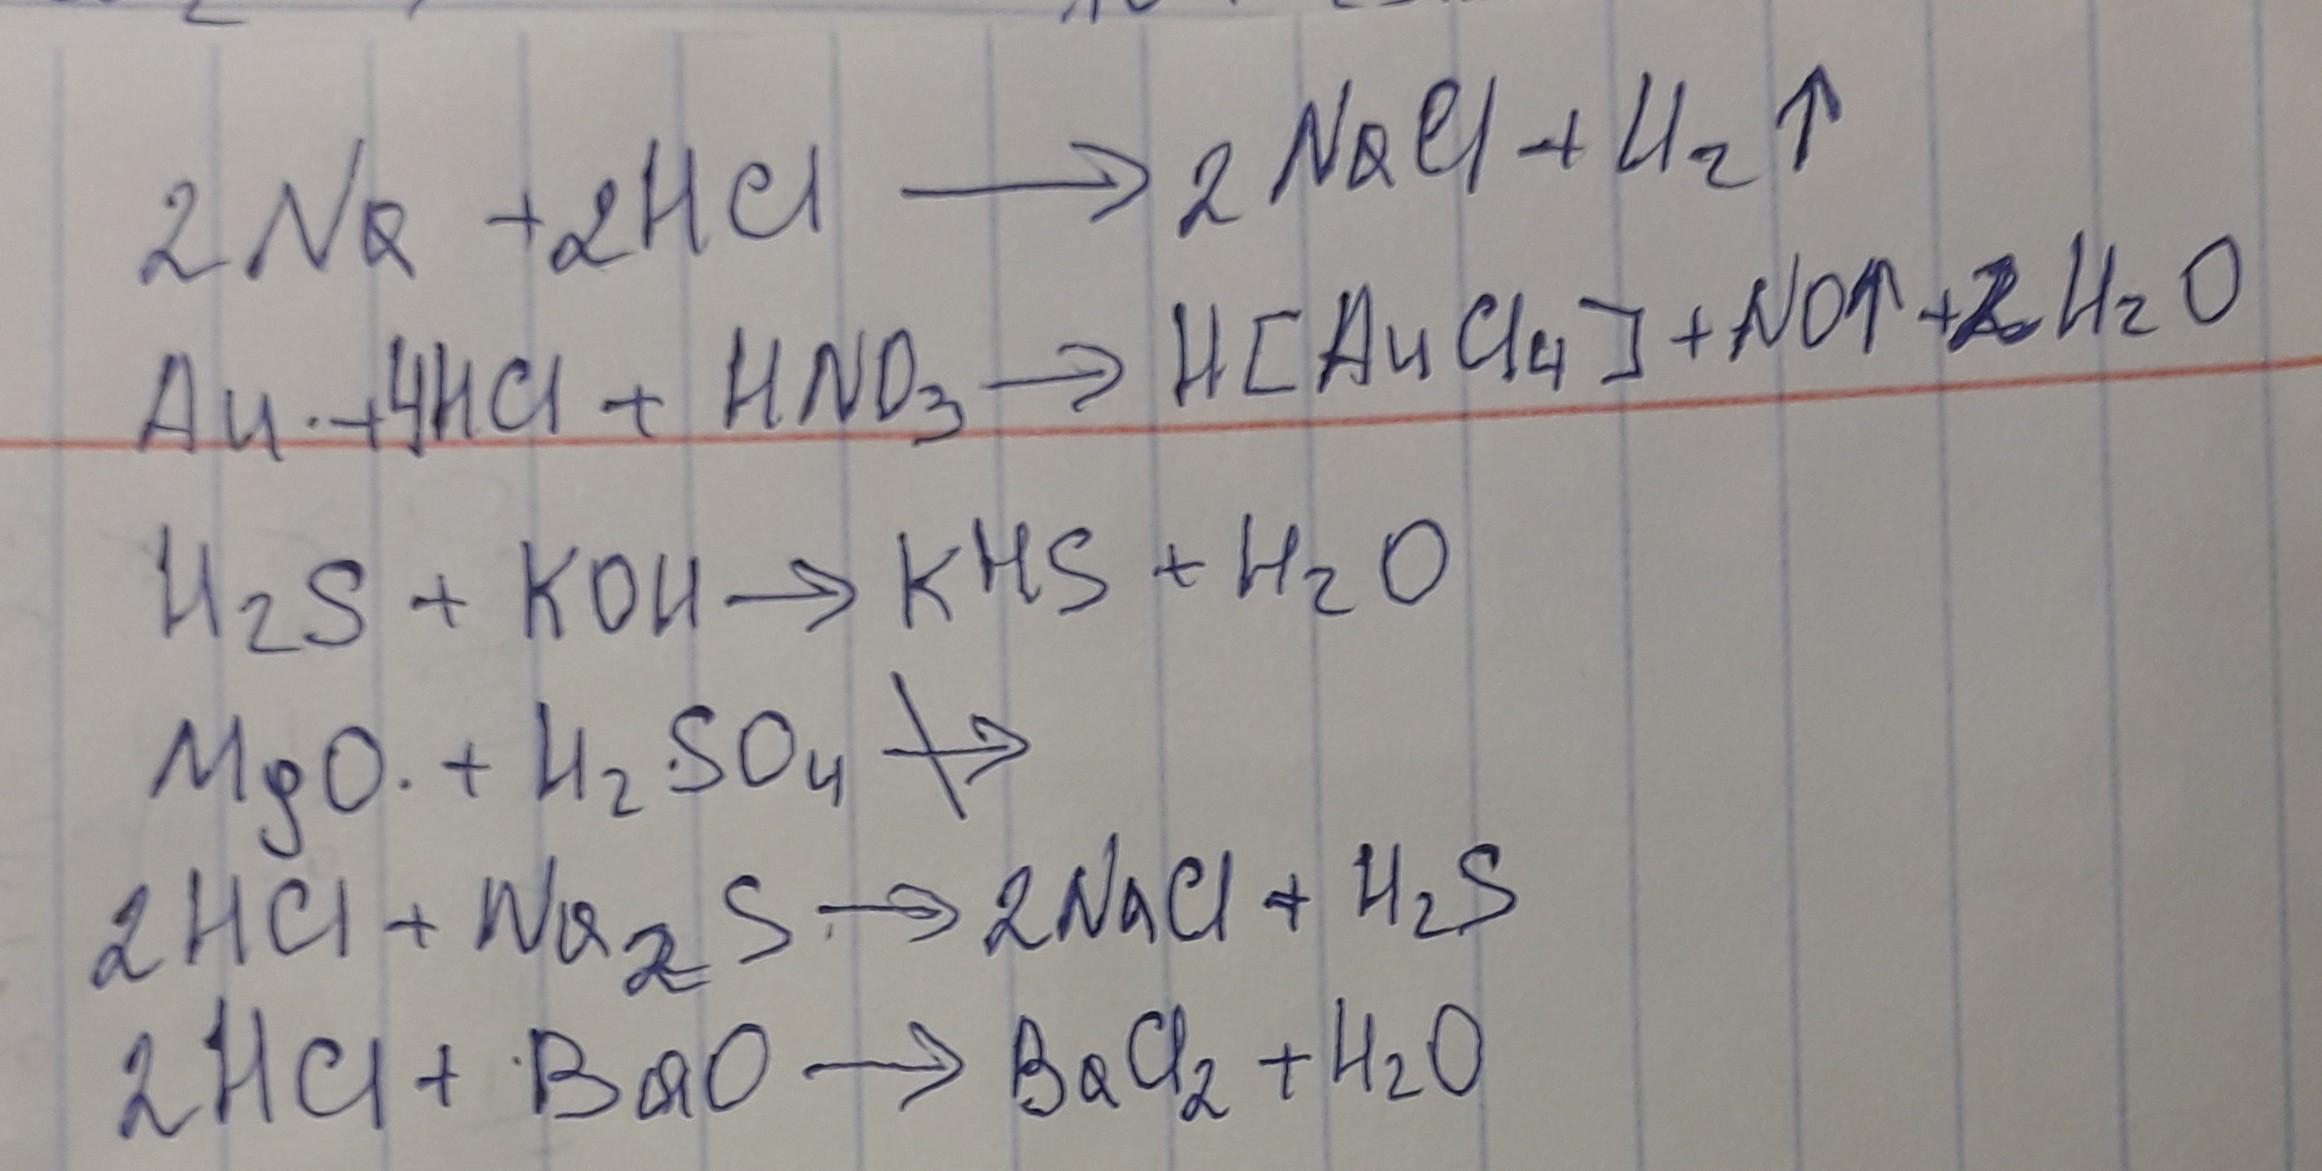 2Na + 2HCl → 2NaCl + H₂↑
Au + 4HCl + HNO₃ → H[AuCl₄] + NO↑ + 2H₂O
H₂S + KOH → KHS + H₂O
MgO + H₂SO₄ ↛
2HCl + Na₂S → 2NaCl + H₂S
2HCl + BaO → BaCl₂ + H₂O